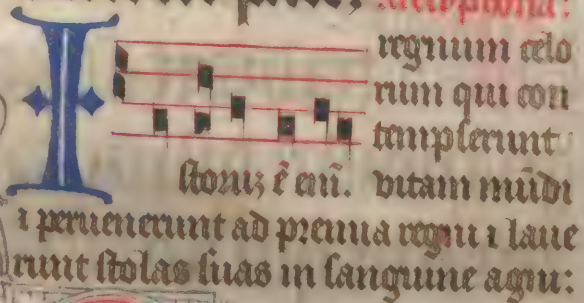 regnum celo
rum qui con
tempserunt
Istoruʒ ē eni. vitam mūdi
⁊ peruenerunt ad premia regni ⁊ laue
runt stolas suas in sanguine agni: